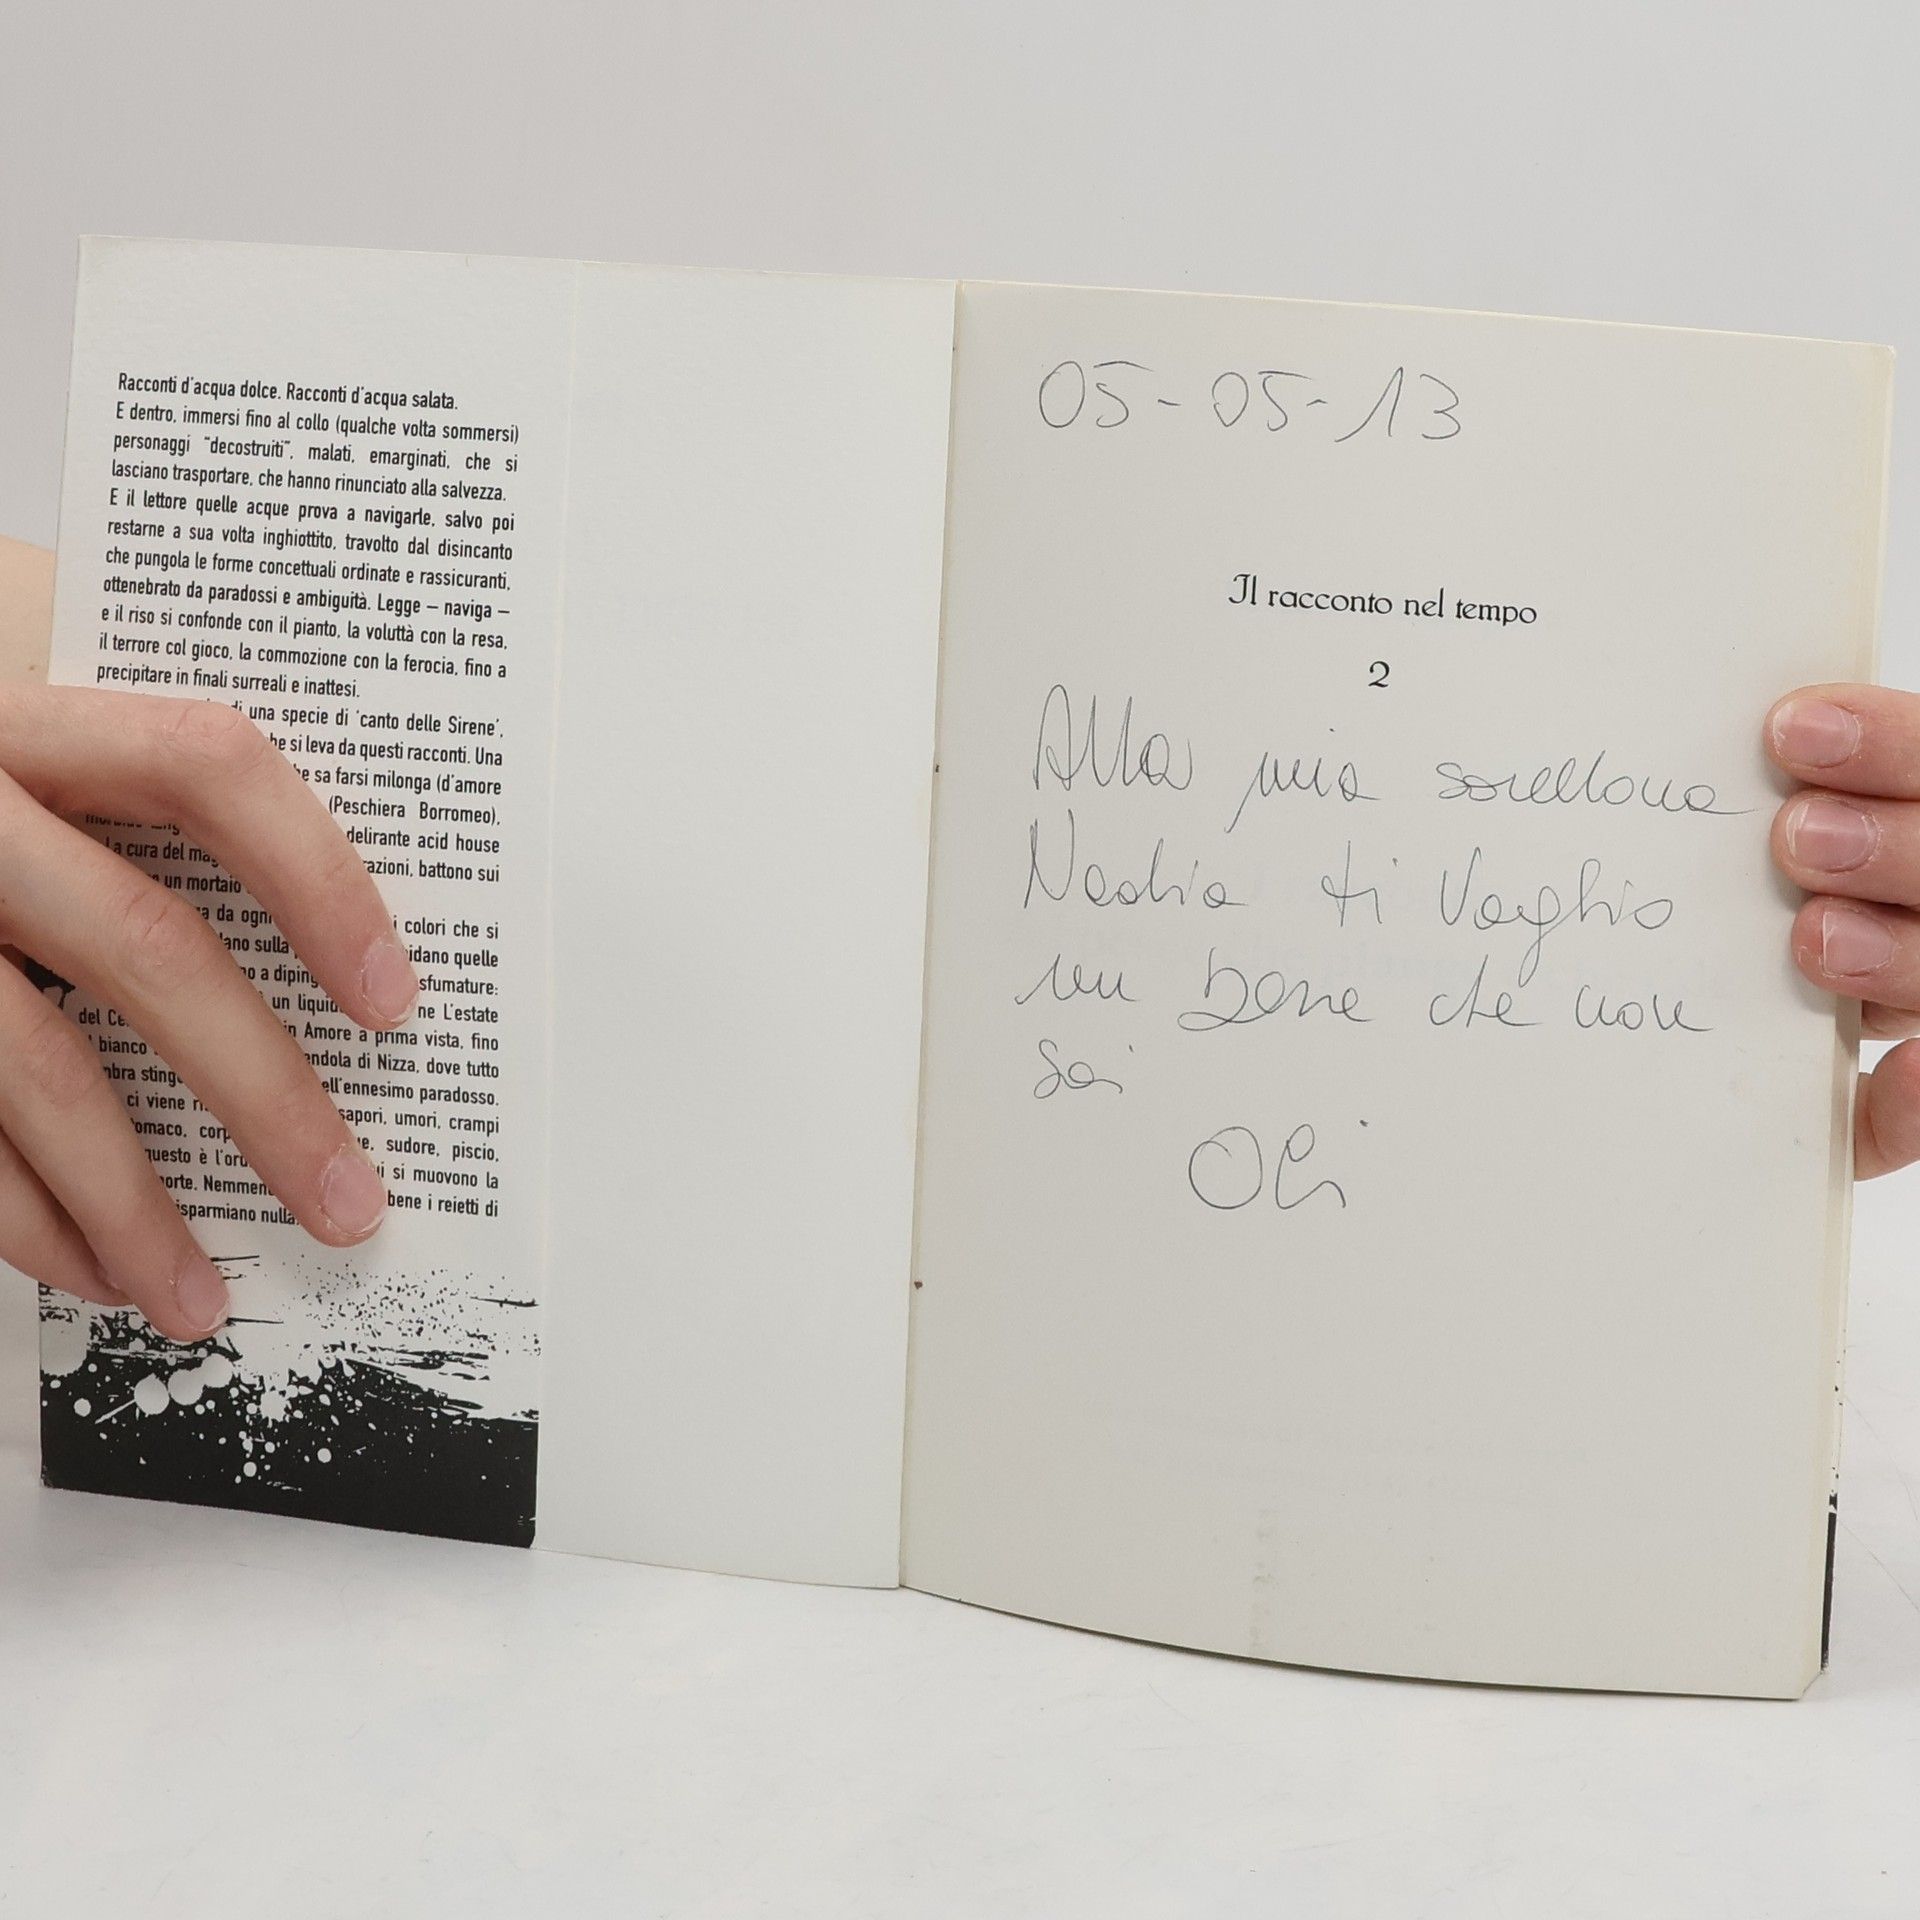 Racconti d'acqua dolce. Racconti d'acqua salata.
E dentro, immersi fino al collo (qualche volta sommersi)
personaggi "decostruiti", malati, emarginati, che si
lasciano trasportare, che hanno rinunciato alla salvezza.
E il lettore quelle acque prova a navigarle, salvo poi
restarne a sua volta inghiottito, travolto dal disincanto
che pungola le forme concettuali ordinate e rassicuranti,
ottenebrato da paradossi e ambiguità. Legge – naviga –
e il riso si confonde con il pianto, la voluttà con la resa,
il terrore col gioco, la commozione con la ferocia, fino a
precipitare in finali surreali e inattesi.
di una specie di 'canto delle Sirene',
he si leva da questi racconti. Una
he sa farsi milonga (d'amore
(Peschiera Borromeo),
delirante acid house
La cura del mag
razioni, battono sui
un mortaio
a da ogni
i colori che si
ano sulla
idano quelle
o a diping
sfumature:
un liquid
ne L'estate
del Ce
in Amore a prima vista, fino
bianco
endola di Nizza, dove tutto
mbra sting
ell'ennesimo paradosso.
ci viene ri
sapori, umori, crampi
omaco, corp
e, sudore, piscio,
questo è l'ord
ui si muovono la
orte. Nemmen
bene i reietti di
isparmiano nulla.
05-05-13
Il racconto nel tempo
2
Alla mia sorellona
Nadia ti Voglio
un bene che non
sai
Oli